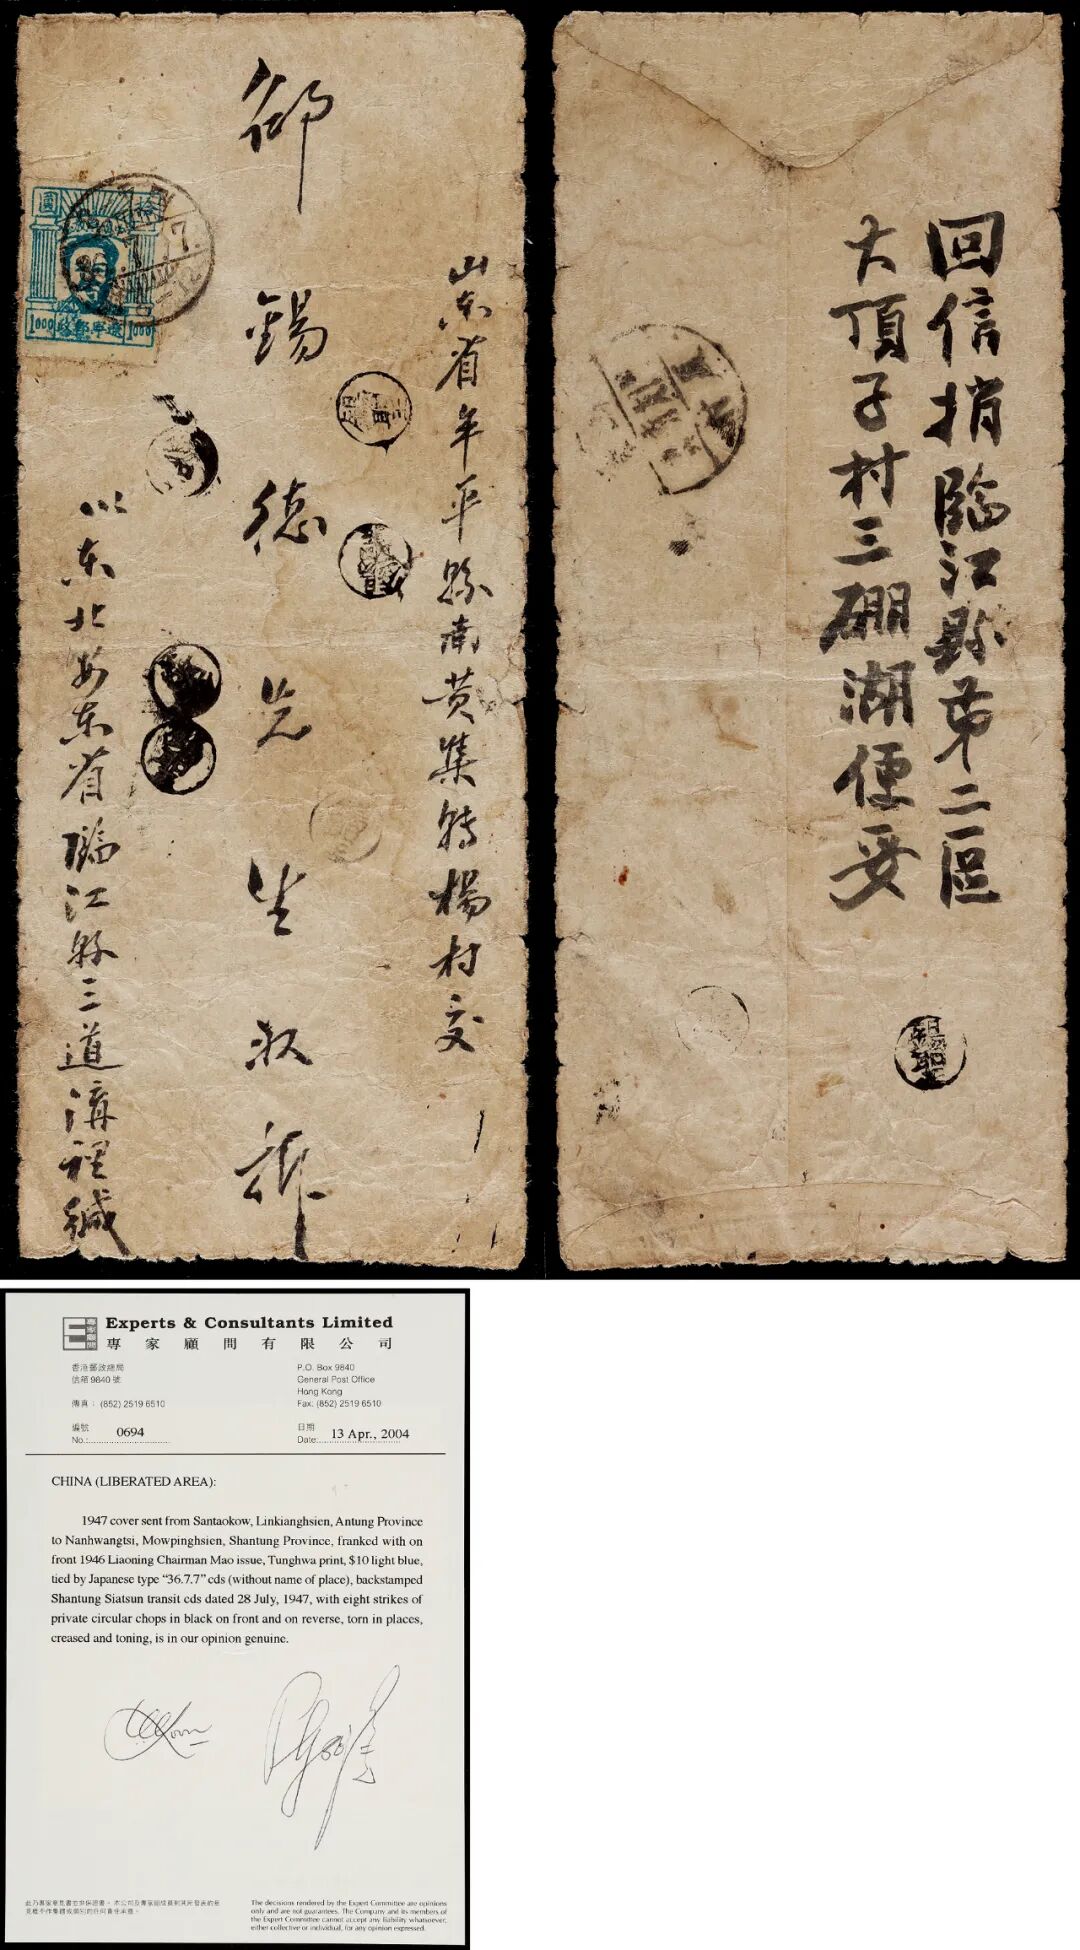 山东省牟平縣南黄集轉楊村交
邵錫德先生收
以东北安东省臨江縣三道溝裡緘
圓 拾
1000 遼寧郵政 1000
36.7.7.
回信捎臨江縣苐二區
大頂子村三硼湖便妥
Experts & Consultants Limited
專家顧問有限公司
香港郵政總局
信箱 9840 號
傳真： (852) 2519 6510
P.O. Box 9840
General Post Office
Hong Kong
Fax: (852) 2519 6510
編號
No.: 0694
日期
Date: 13 Apr., 2004
CHINA (LIBERATED AREA):
1947 cover sent from Santaokow, Linkianghsien, Antung Province
to Nanhwangtsi, Mowpinghsien, Shantung Province, franked with on
front 1946 Liaoning Chairman Mao issue, Tunghwa print, $10 light blue,
tied by Japanese type “36.7.7” cds (without name of place), backstamped
Shantung Siatsun transit cds dated 28 July, 1947, with eight strikes of
private circular chops in black on front and on reverse, torn in places,
creased and toning, is in our opinion genuine.
The decisions rendered by the Expert Committee are opinions
only and are not guarantees. The Company and its members of
the Expert Committee cannot accept any liability whatsoever,
either collective or individual, for any opinion expressed.